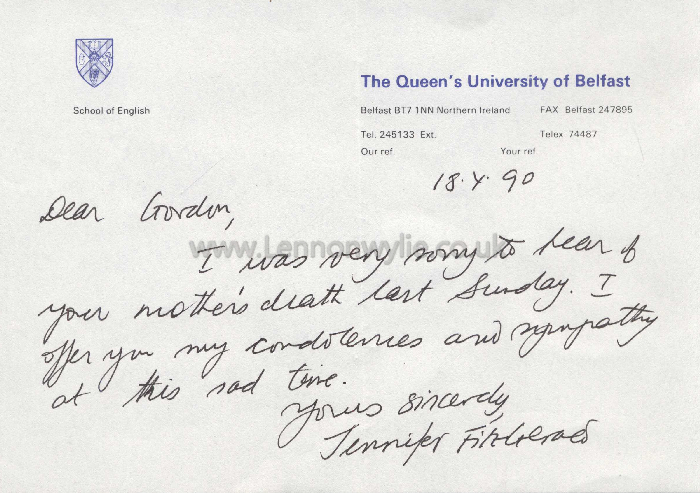 The Queen's University of Belfast
School of English
Belfast BT7 1NN Northern Ireland FAX Belfast 247895
Tel. 245133 Ext. Telex 74487
Our ref Your ref
18.4.90
Dear Gordon,
www.Lennonwylie.co.uk
I was very sorry to hear of
your mother's death last Sunday. I
offer you my condolences and sympathy
at this sad time.
Yours sincerely,
Jennifer FitzGerald